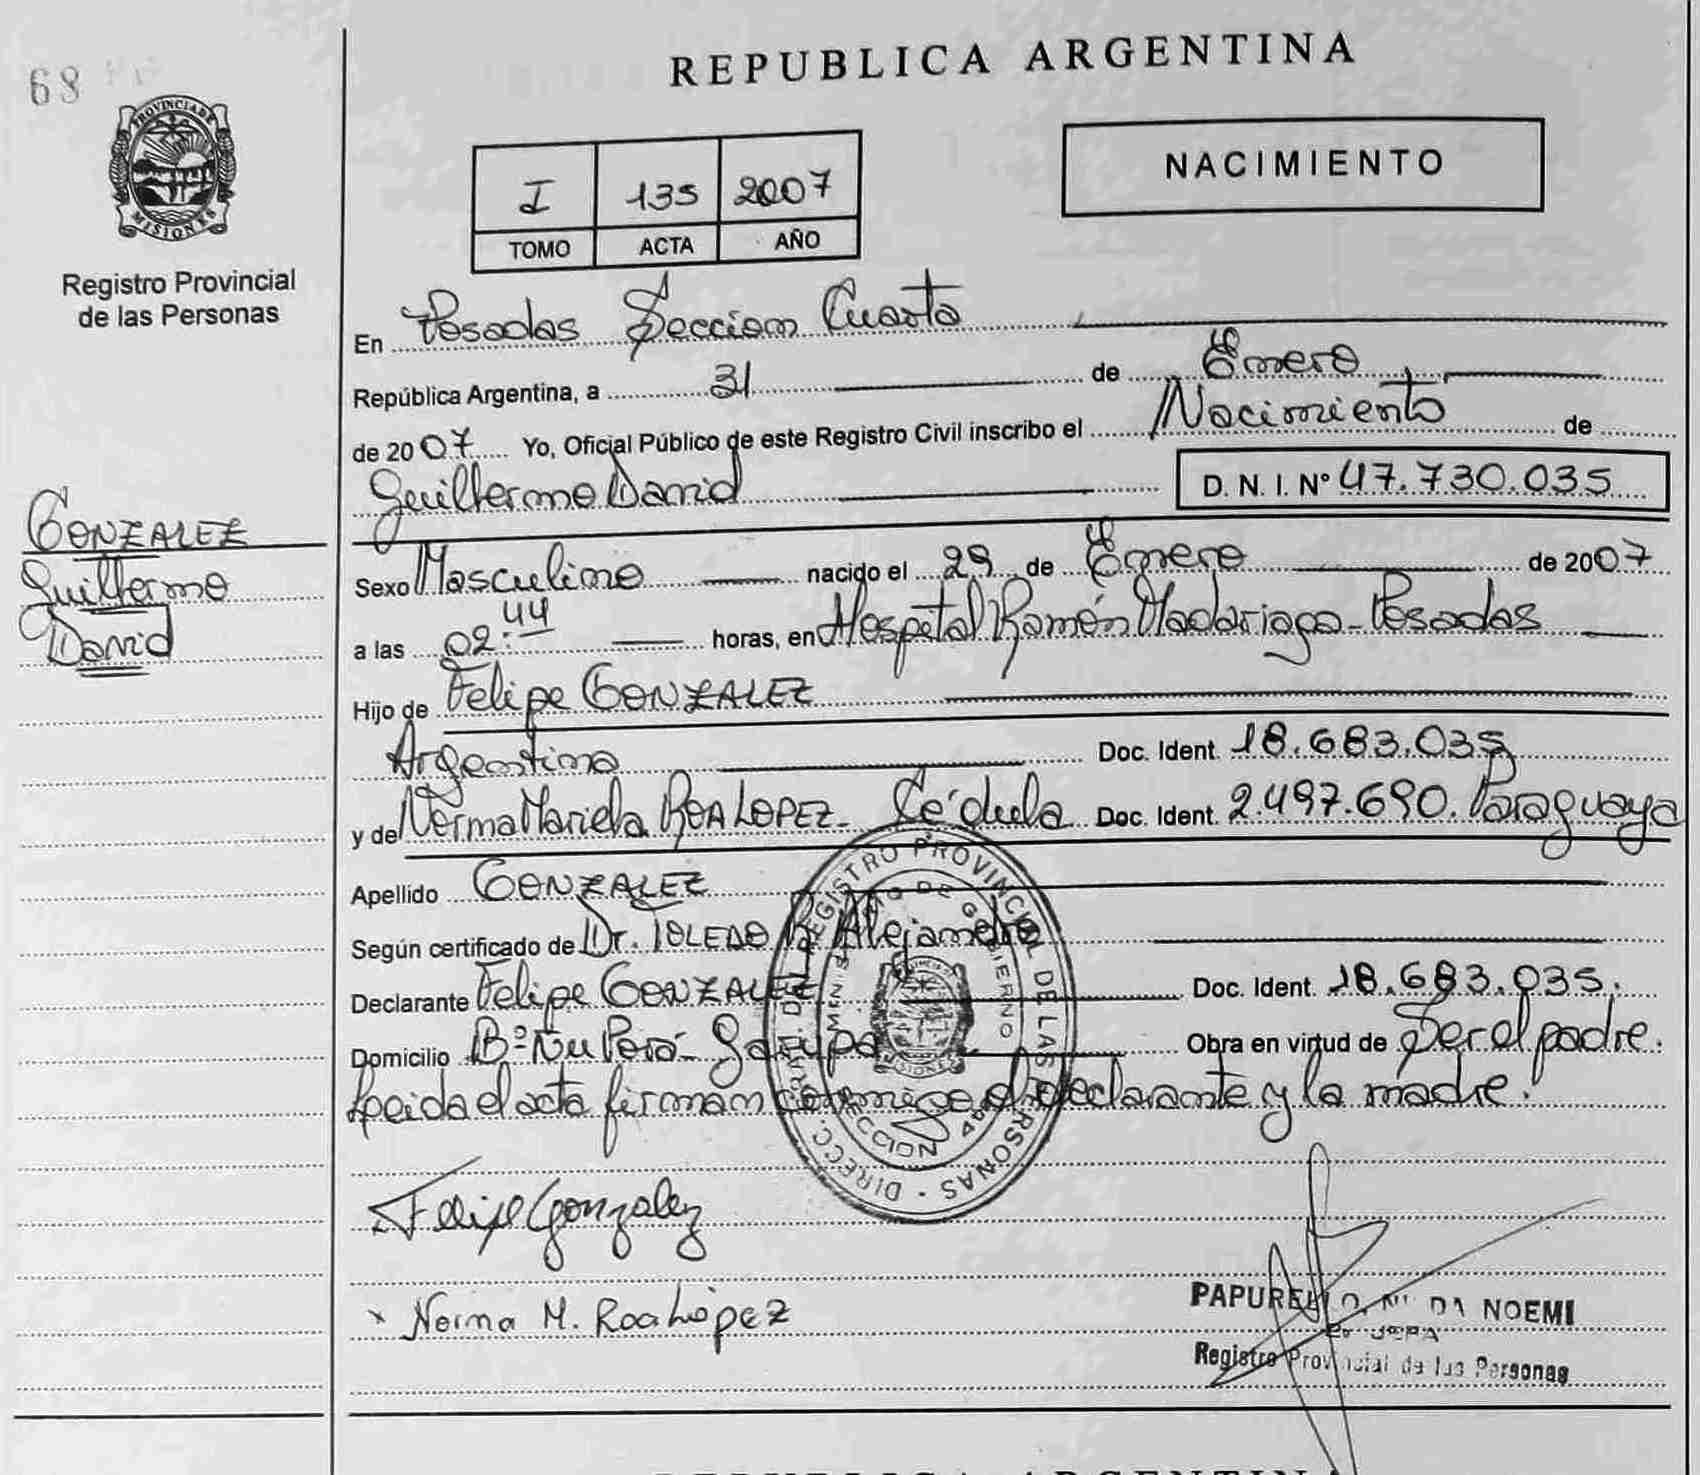 68
REPUBLICA ARGENTINA
PROVINCIA DE MISIONES
Registro Provincial
de las Personas
I 135 2007
TOMO ACTA AÑO
NACIMIENTO
En Posadas Seccion Cuarta
República Argentina, a 31 de Enero
de 2007 Yo, Oficial Público de este Registro Civil inscribo el Nacimiento de
Guillermo David D. N. I. Nº 47.730.035
GONZALEZ
Guillermo
David
Sexo Masculino nacido el 29 de Enero de 2007
a las 02:44 horas, en Hospital Ramón Madariaga - Posadas
Hijo de Felipe GONZALEZ
Argentino Doc. Ident. 18.683.035
y de Norma Mariela ROA LOPEZ - Cédula Doc. Ident. 2.497.690. Paraguaya
Apellido GONZALEZ
Según certificado de Dr. TOLEDO R. Alejandro
Declarante Felipe GONZALEZ Doc. Ident. 18.683.035.
Domicilio Bº Ñu Porá - Garupá Obra en virtud de Ser el padre.
Leida el acta firman conmigo el declarante y la madre.
DIRECC. GRAL. DEL REGISTRO PROVINCIAL DE LAS PERSONAS
MINISTERIO DE GOBIERNO
Felipe Gonzalez
x Norma M. Roa López
PAPURELLO, NOEMI
JEFA
Registro Provincial de las Personas
REPUBLICA ARGENTINA